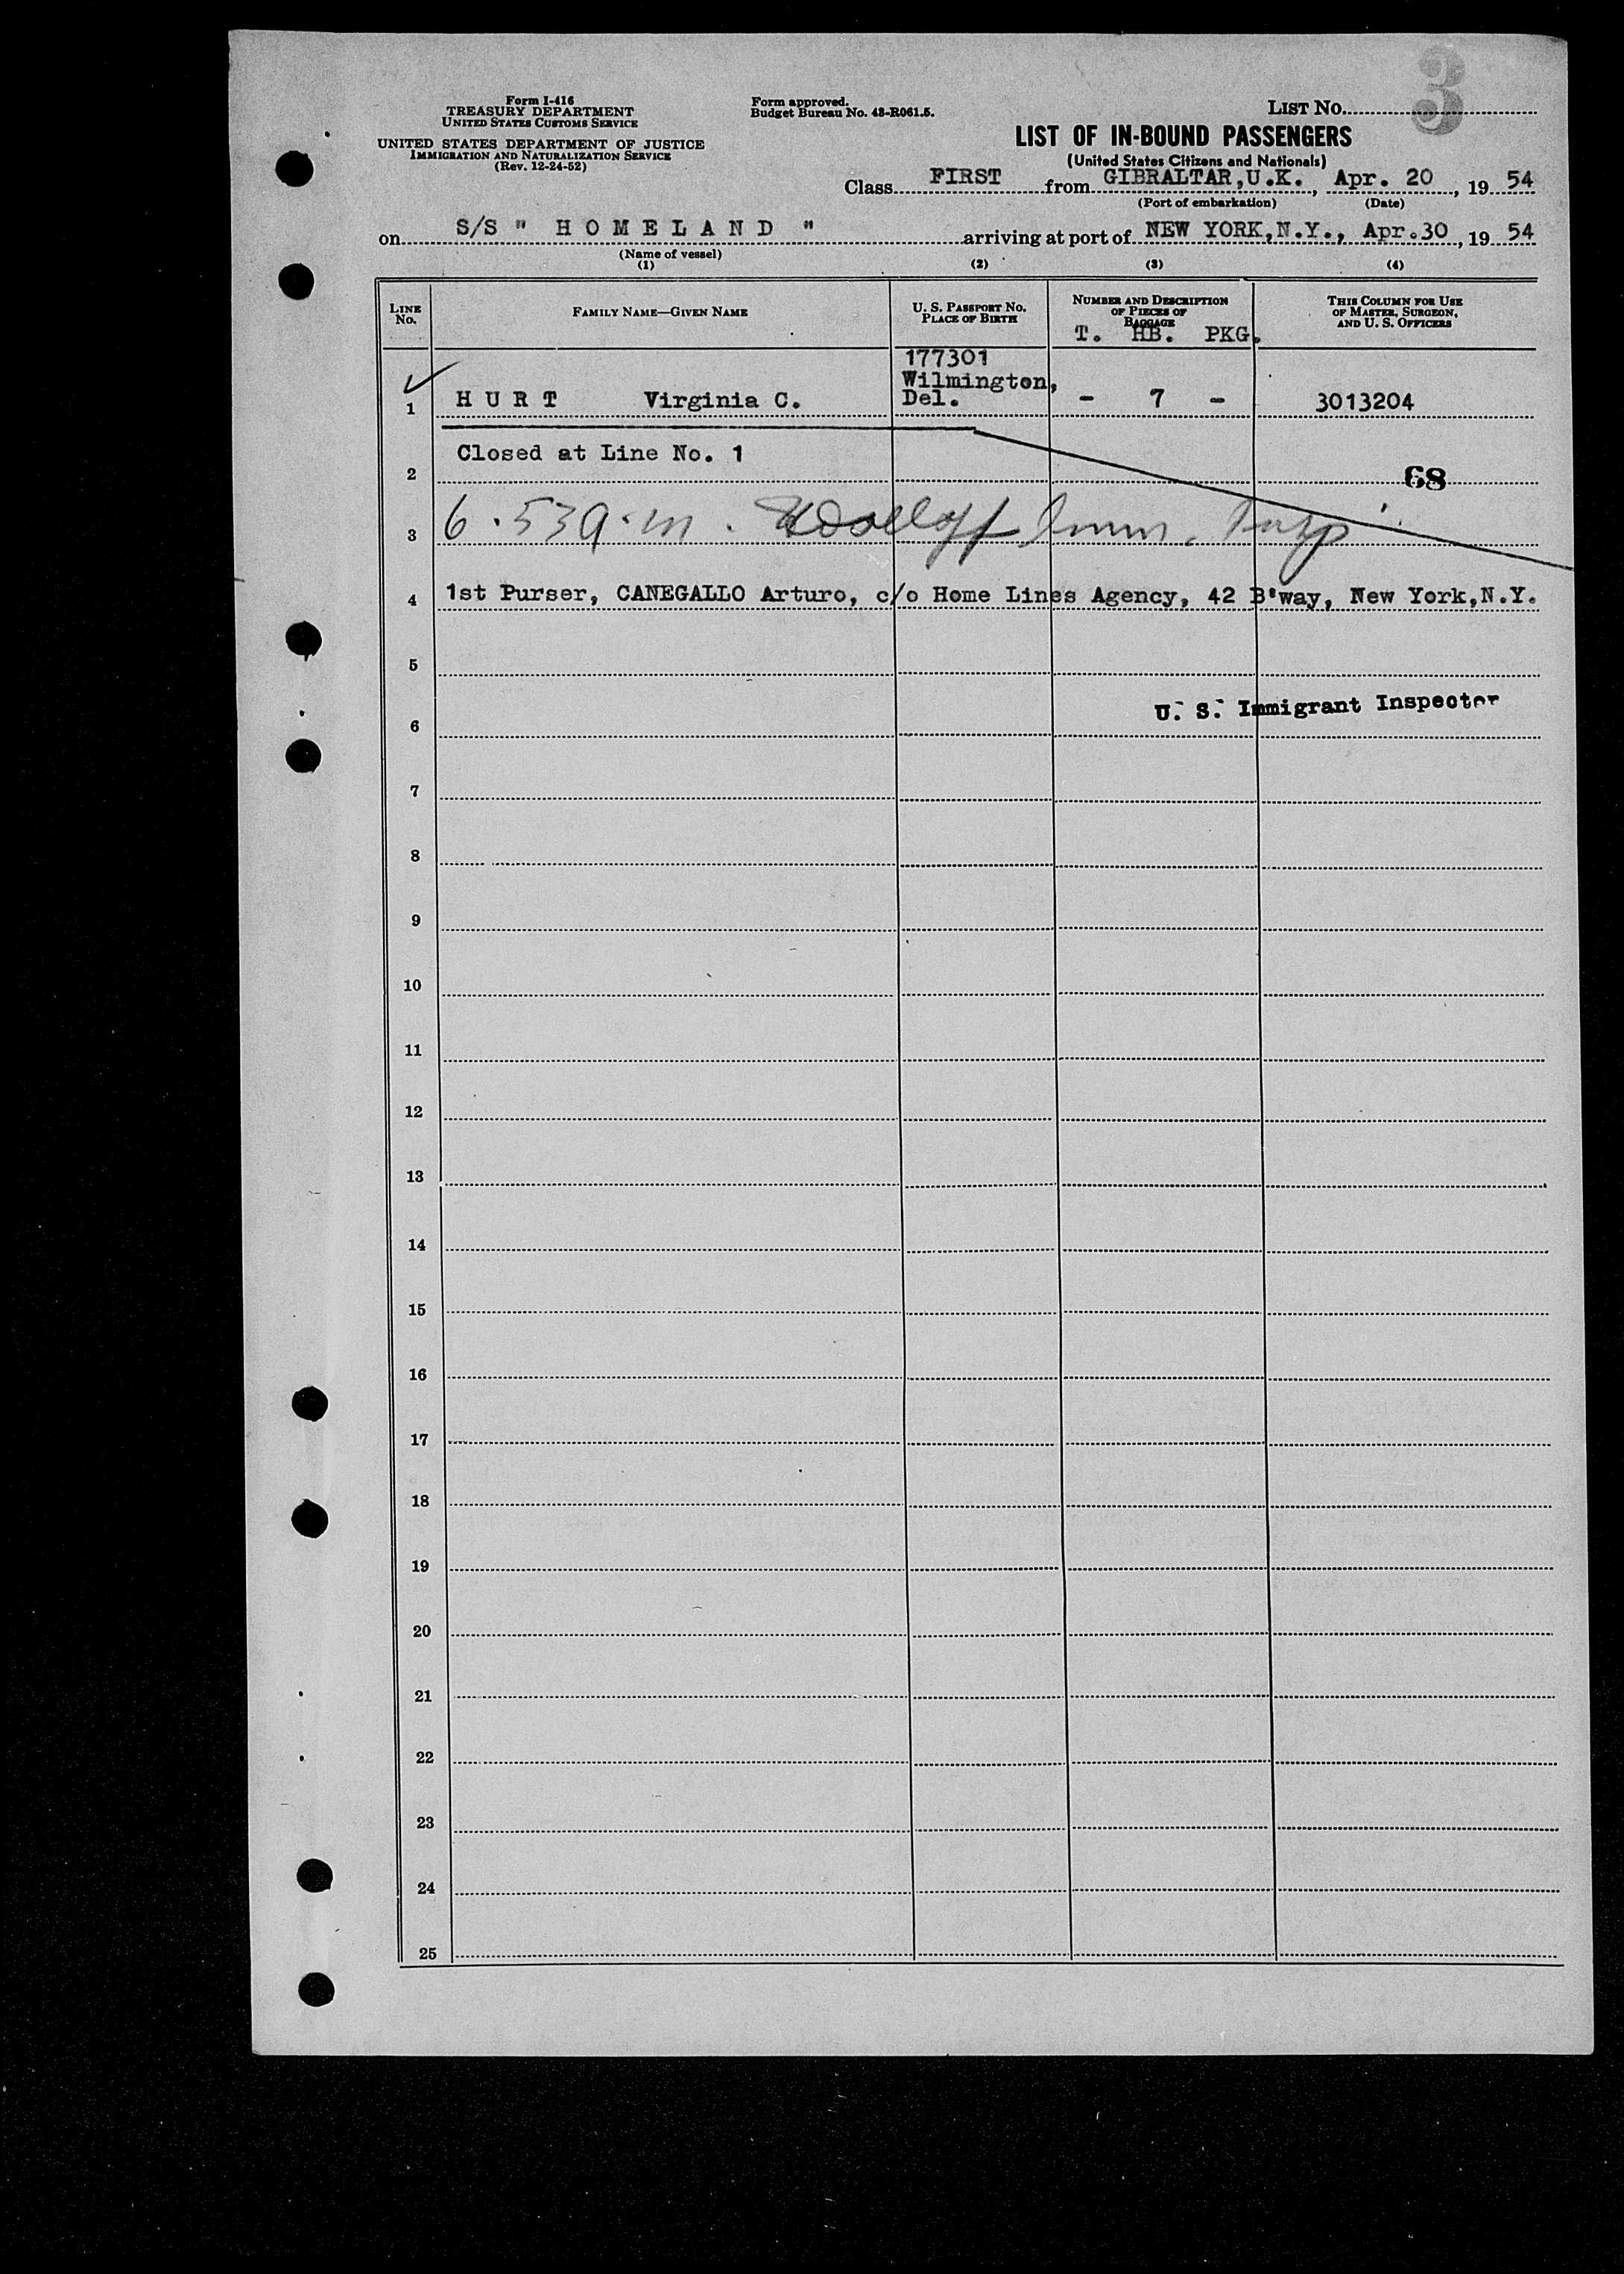 Form I-416
TREASURY DEPARTMENT
UNITED STATES CUSTOMS SERVICE
UNITED STATES DEPARTMENT OF JUSTICE
IMMIGRATION AND NATURALIZATION SERVICE
(Rev. 12-24-52)
Form approved.
Budget Bureau No. 43-R061.5.
LIST No. 3
LIST OF IN-BOUND PASSENGERS
(United States Citizens and Nationals)
Class FIRST from GIBRALTAR, U.K., Apr. 20, 19 54
(Port of embarkation) (Date)
on S/S " H O M E L A N D " arriving at port of NEW YORK, N.Y., Apr. 30, 19 54
(Name of vessel)
(1) (2) (3) (4)
LINE No.
FAMILY NAME—GIVEN NAME
U. S. PASSPORT No.
PLACE OF BIRTH
NUMBER AND DESCRIPTION
OF PIECES OF
BAGGAGE
T. HB. PKG.
THIS COLUMN FOR USE
OF MASTER, SURGEON,
AND U. S. OFFICERS
177301
Wilmington,
1 H U R T Virginia C. Del. - 7 - 3013204
Closed at Line No. 1
2 68
3 6.53 a.m. Imm. Insp
4 1st Purser, CANEGALLO Arturo, c/o Home Lines Agency, 42 B'way, New York, N.Y.
5
U. S. Immigrant Inspector
6
7
8
9
10
11
12
13
14
15
16
17
18
19
20
21
22
23
24
25